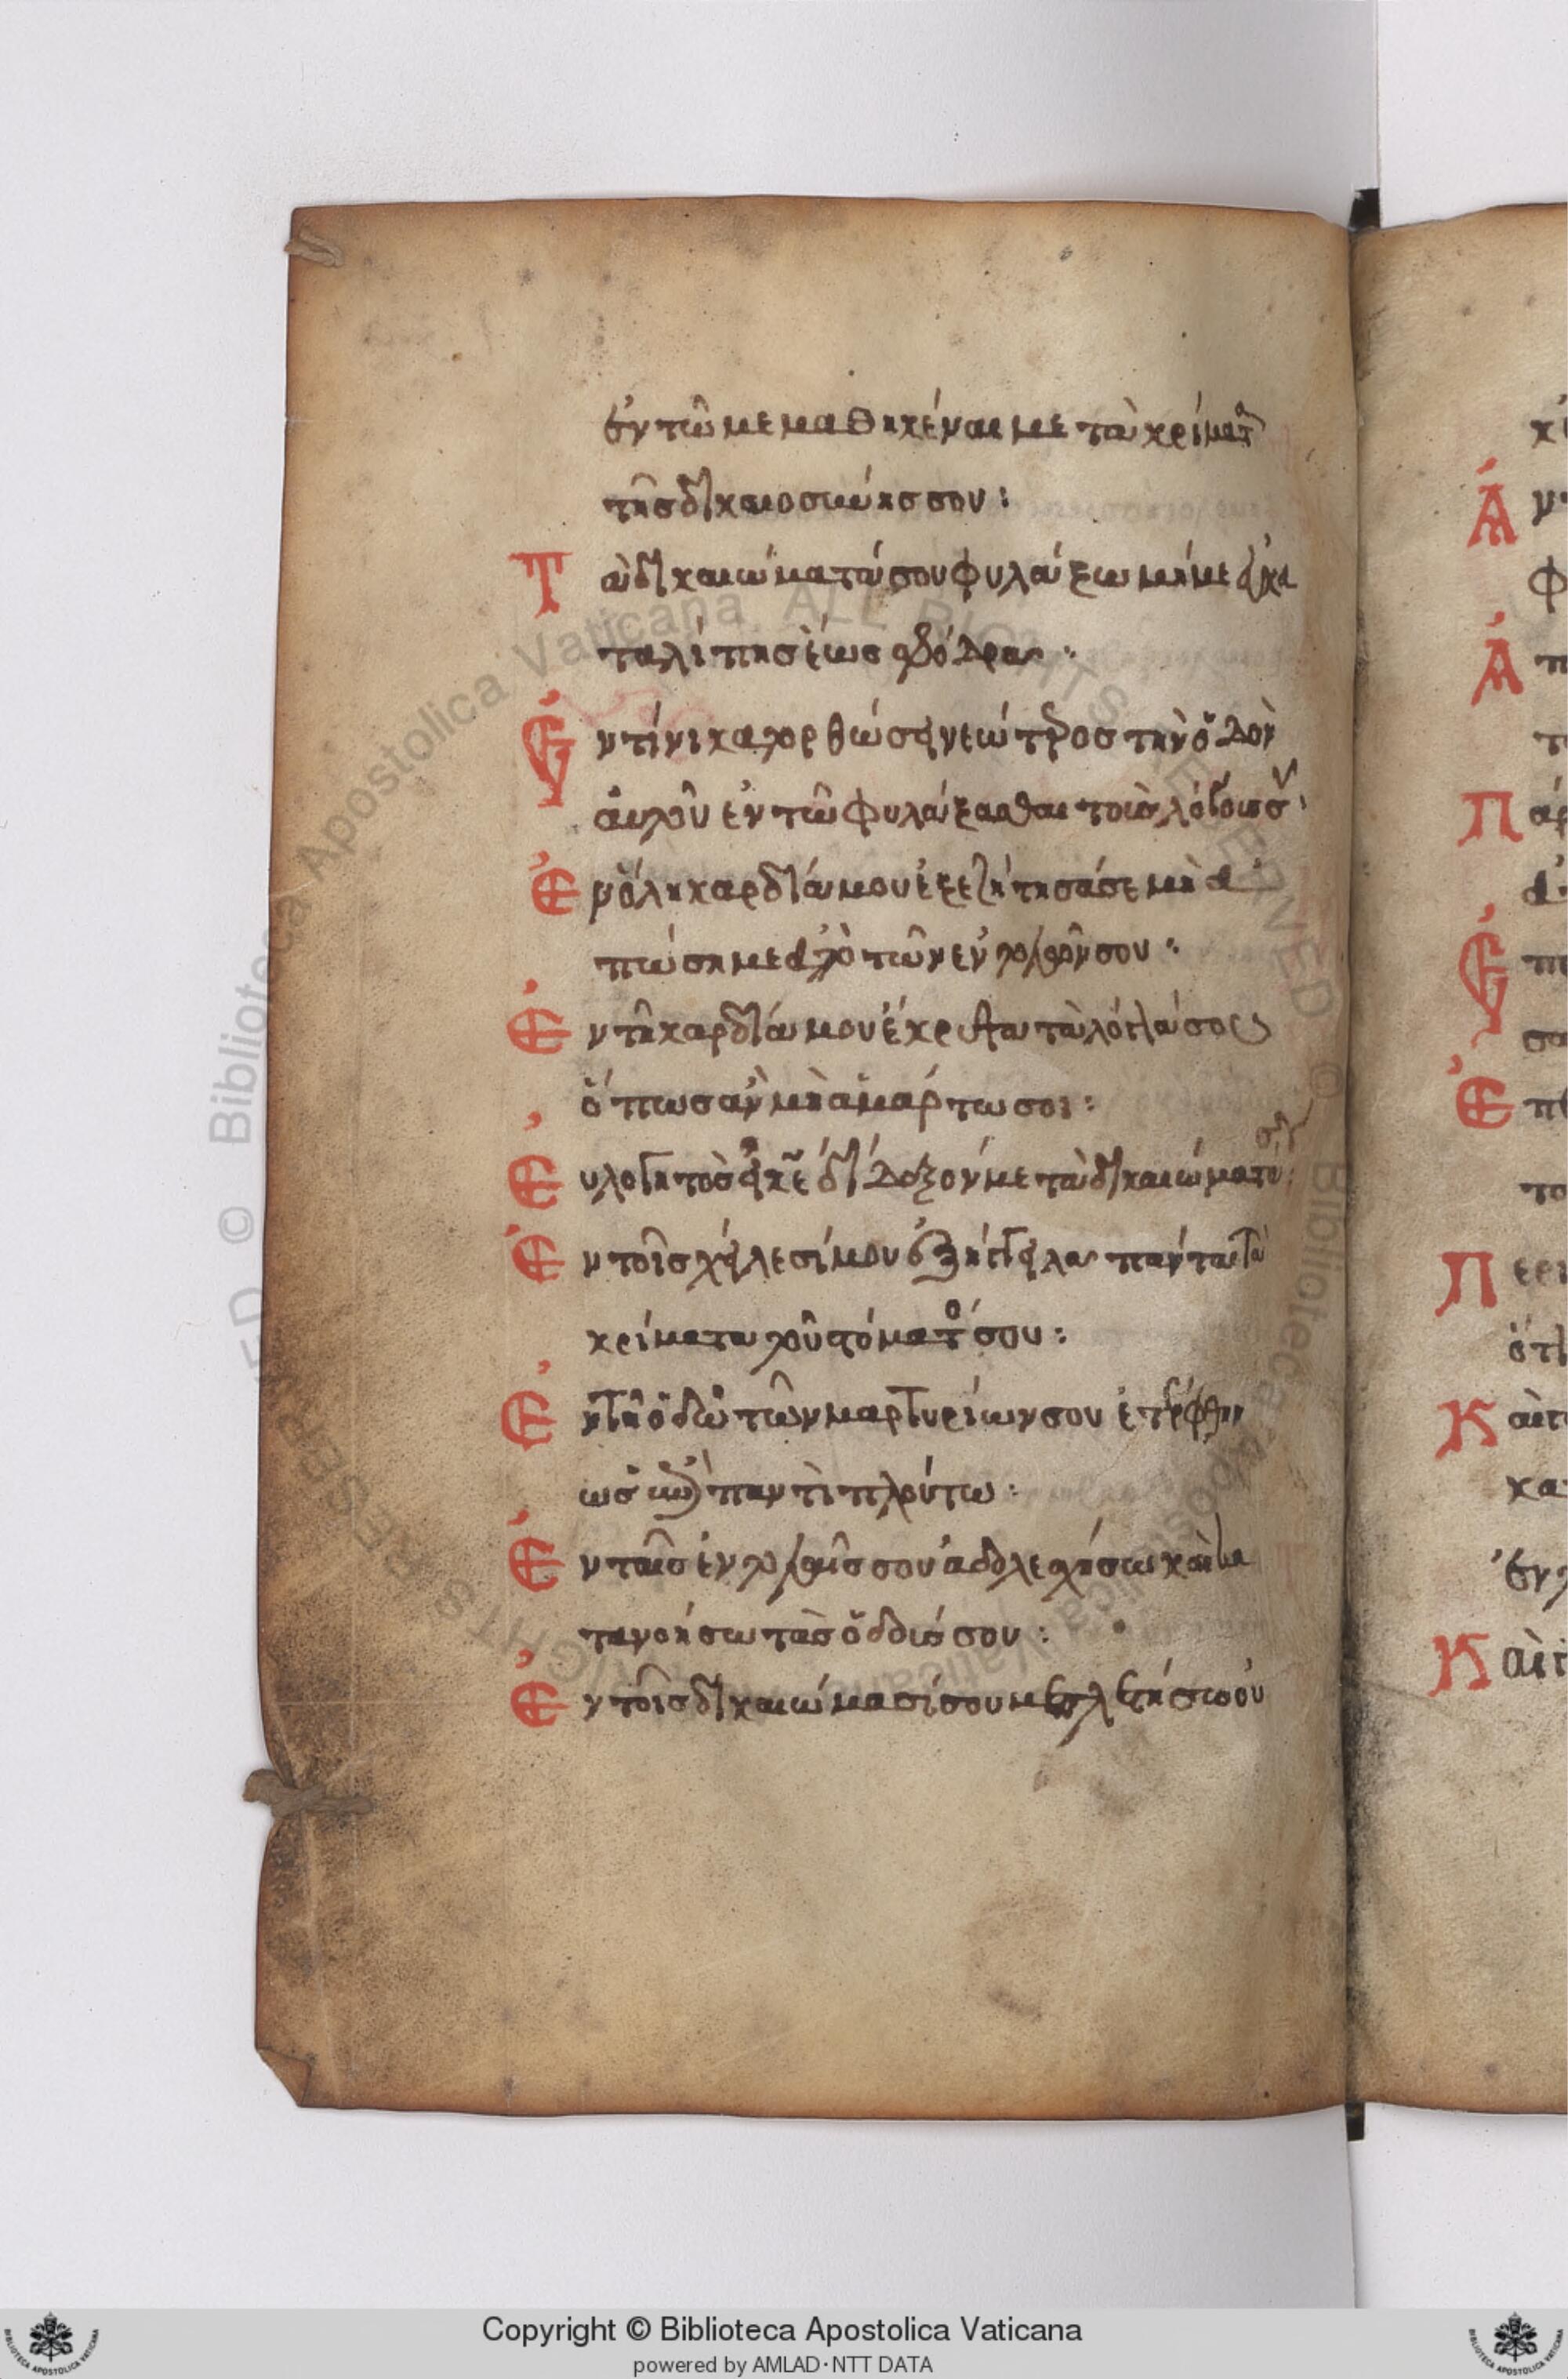 ἐν τῶ μεμαθηκέναι με τὰ κρίματα
τῆς δικαιοσύνης σου:
Τὰ δικαιώματά σου φυλάξω μή με ἐγκα
ταλίπης ἕως σφόδρα:
Ἐν τίνι κατορθώσει νεώτερος τὴν ὁδὸν
αὐτοῦ ἐν τῶ φυλάξασθαι τοὺς λόγους σου
Ἐν ὅλη καρδία μου ἐξεζήτησά σε μὴ ἀ
πώση με ἀπὸ τῶν ἐντολῶν σου:
Ἐν τῆ καρδία μου ἔκρυψα τὰ λόγιά σου
ὅπως ἂν μὴ ἁμάρτω σοι:
Εὐλογητὸς εἶ κε δίδαξόν με τὰ δικαιώματά σου
Ἐν τοῖς χείλεσί μου ἐξήγγειλα πάντα τὰ
κρίματα τοῦ στόματός σου:
Ἐν τῆ ὁδῶ τῶν μαρτυρίων σου ἐτέρφθην
ὡς ἐπὶ παντὶ πλούτω:
Ἐν ταῖς ἐντολαῖς σου ἀδολεσχήσω καὶ κα
τανοήσω τὰς ὁδούς σου:
Ἐν τοῖς δικαιώμασί σου μελετήσω οὐ
κ
Ἀ ν
φ
Ἀ π
τ
Π αρ
ἀ
Ἐ πι
σα
Ἐ π
το
Π ερι
ὅτι
Κ αὶ τ
κα
ἐν
Κ αὶ
Copyright © Biblioteca Apostolica Vaticana
powered by AMLAD·NTT DATA